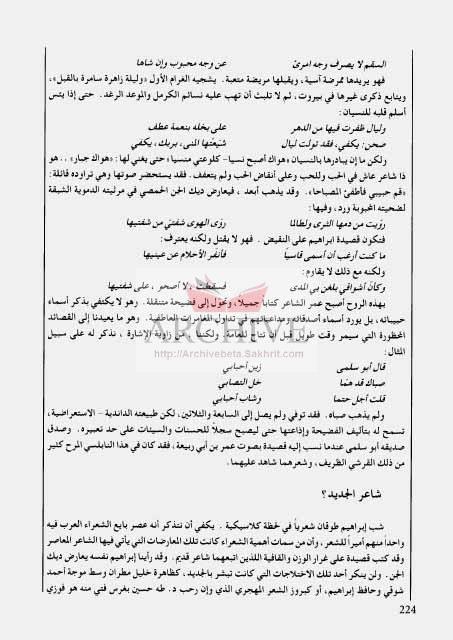 السقم لا يصرف وجه امرئ عن وجه محبوب وإن شاها
فهو يريدها ممرضة آسية، ويقبلها مريضة متعبة. يشجيه الغرام الأول «وليلة زاهرة سامرة بالقبل»،
ويتابع ذكرى غيرها في بيروت، ثم لا تلبث أن تهب عليه نسائم الكرمل والموعد الرغد. حتى إذا يئس
أسلم قلبه للنسيان:
وليال ظفرت فيها من الدهر على بخله بنعمة عطف
صحن: يكفي، فقد تولت ليال شيّعتها المنى، بربك، يكفي
ولكن ما إن يبادرها بالنسيان «هواك أصبح نسيا – كلوعتي منسيا» حتى يغني لها: «هواك جبار»، . هو
ذا شاعر عاش في الحب وللحب وعلى أنقاض الحب ولم يتعفف. فقد يستحضر صوتها وهي تراوده قائلة:
«قم حبيبي فأطفئ المصباحا». وقد يذهب أبعد، فيعارض ديك الجن الحمصي في مرثيته الدموية الشبقة
لضحيته المحبوبة ورد، وفيها:
روّيت من دمها الثرى ولطالما روّى الهوى شفتيّ من شفتيها
فتكون قصيدة ابراهيم على النقيض. فهو لا يقتل ولكنه يعترف:
ما كنت أرغب أن أسمى قاسياً فأنفّر الأحلام عن عينيها
ولكنه مع ذلك لا يقاوم:
وكأنّ أشواقي بلغن بي المدى فسقطت، لا أصحو، على شفتيها
بهذه الروح أصبح عمر الشاعر كتاباً جميلا، وتحوّل إلى فضيحة متنقلة. وهو لا يكتفي بذكر أسماء
حبيباته، بل يورد أسماء أصدقائه ومداعباتهم في تداول المغامرات العاطفية. وهو ما يعيدنا إلى القصائد
المحظورة التي سيمر وقت طويل قبل أن تتاح للعامة. ولكننا، من زاوية الإشارة، نذكر له على سبيل
المثال:
قال أبو سلمى زين أحبابي
صباك قد همّا خل التصابي
قلت أجل حتما وشاب أحبابي
ولم يذهب صباه. فقد توفي ولم يصل إلى السابعة والثلاثين، لكن طبيعته الداندية – الاستعراضية،
تسمح له بتأليف الفضيحة وإذاعتها حتى ليصبح سجلاً للحسنات والسيئات على حد تعبيره. وصدق
صديقه أبو سلمى عندما نسب إليه قصيدة بصوت عمر بن أبي ربيعة، فقد كان في هذا النابلسي المرح كثير
من ذلك القرشي الظريف، وشعرهما شاهد عليهما.
شاعر الجديد؟
شب إبراهيم طوقان شعرياً في لحظة كلاسيكية. يكفي أن نتذكر أنه عصر بايع الشعراء العرب فيه
واحداً منهم أميراً للشعر، وأن من سمات أهمية الشعراء كانت تلك المعارضات التي يأتي فيها الشاعر المعاصر
وقد كتب قصيدة على غرار الوزن والقافية اللذين اتبعهما شاعر قديم. وقد رأينا إبراهيم نفسه يعارض ديك
الجن. ولن ينكر أحد تلك الاختلاجات التي كانت تبشر بالجديد، كظاهرة خليل مطران وسط موجة أحمد
شوقي وحافظ إبراهيم، أو كبروز الشعر المهجري الذي وإن رحب د. طه حسين بغرس فتي منه هو فوزي
224
ARCHIVE
http://Archivebeta.Sakhrit.com